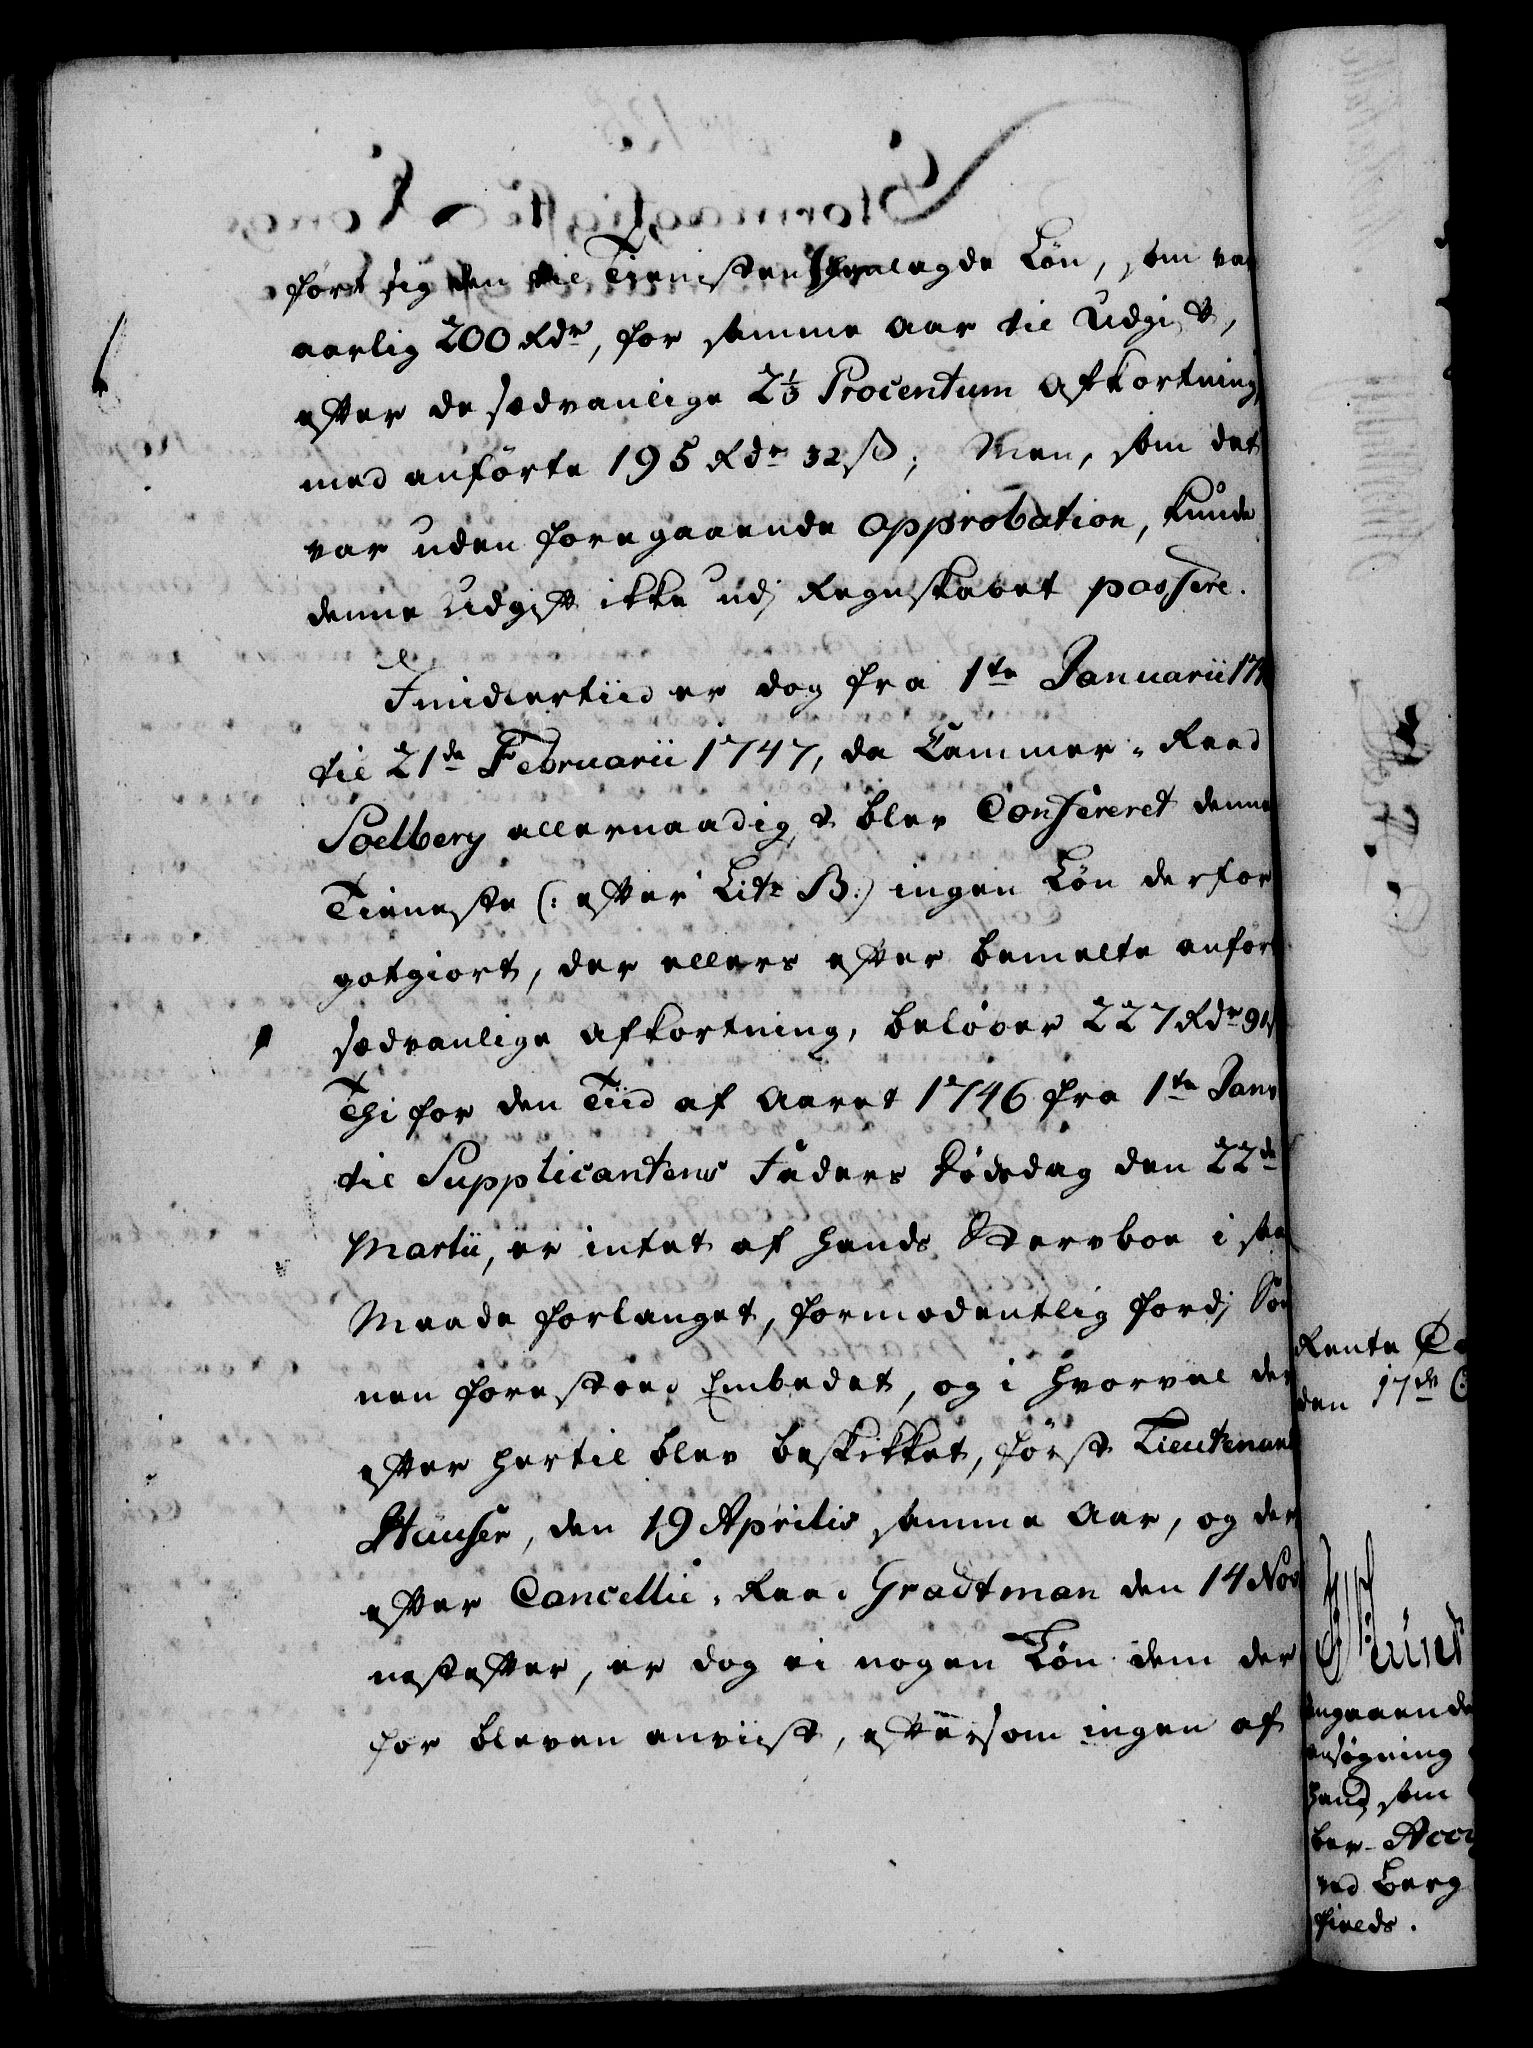 ført sig den til Tienisten henlagde Løn, som var
aarlig 200 Rdr, for samme Aar til Udgift,
efter de sædvanlige 2⅓ Procentum Afkortning,
med anførte 195 Rdr 32 ß; Men, som det
var uden foregaaende Approbation, kunde
denne Udgift ikke udj Regnskabet passere.
Imidlertiid er dog fra 1te Januarii 174
til 21de Februarii 1747, da Cammer-Raad
Soelberg allernaadigst blev Confereret denne
Tieneste (: efter Litr B:) ingen Løn derfor
gotgiort, der ellers efter bemelte anført
sædvanlige Afkortning, beløber 227 Rdr 91 ß
Thi for den Tiid af Aaret 1746 fra 1te Janv
til Supplicantens Faders Dødsdag den 22de
Martii, er intet af hands Stervboe i saa
Maade forlanget, formodentlig fordj Søn
nen forestoed Embedet, og i hvorvel der
efter hertil blev beskikket, først Lieutenant
Hauser, den 19 Aprilis samme Aar, og der
efter Cancellie-Raad Gradtman den 14 Nov
nestefter, er dog ei nogen Løn dem der
for bleven anviist, eftersom ingen af
Rente Ca
den 17de
angaaende
ansøgning
hand som
ber- Acci
ved Berg
fields.